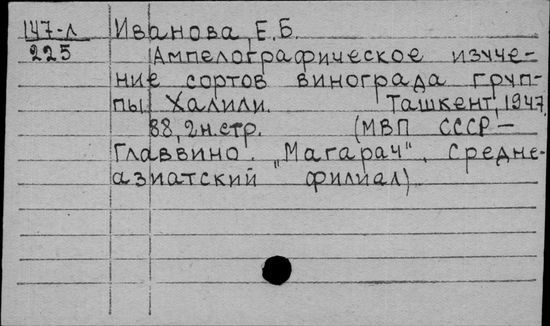 147-л Иванова, Е.Б.
225 Ампелографическое изуче-
ние сортов винограда груп-
пы Халили. Ташкент, 1947.
88, 2 н.стр. (МВП СССР –
Главвино. "Магарач". Средне-
азиатский филиал).